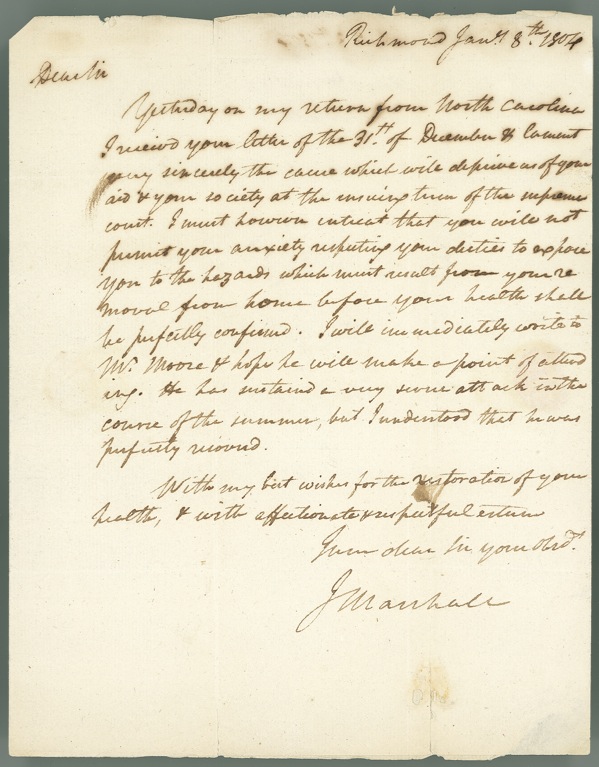 Richmond Jany 8th 1804
Dear Sir
Yesterday on my return from North Carolina
I receivd your letter of the 31st of December & lament
very sincerely the cause which will deprive us of your
aid & your society at the ensuing term of the supreme
court. I must however intreat that you will not
permit your anxiety respecting your duties to expose
you to the hazards which must result from your re
moval from home before your health shall
be perfectly confirmd. I will immediately write to
Mr. Moore & hope he will make a point of attend
ing. He has sustaind a very severe attack in the
course of the summer, but I understood that he was
perfectly recoverd.
With my best wishes for the restoration of your
health, & with affectionate & respectful esteem
I am dear Sir your Obedt.
J Marshall